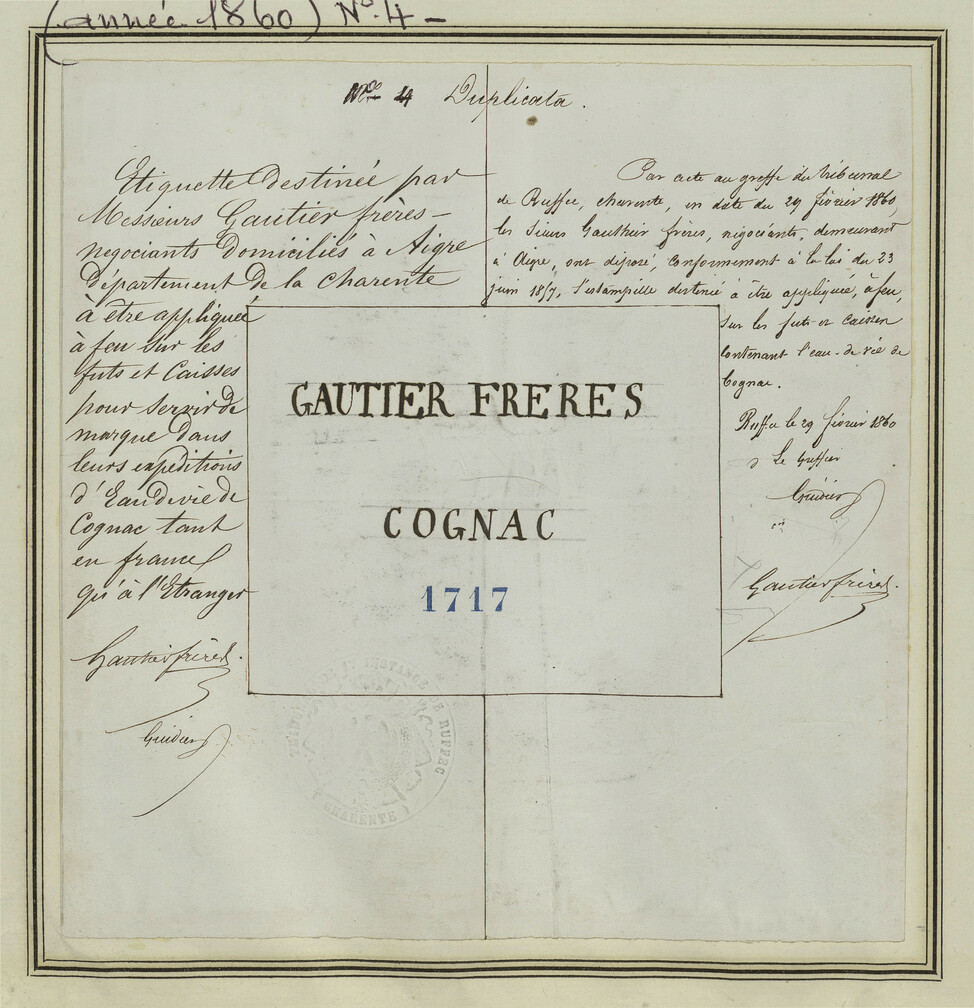 (année 1860) N°. 4 -
N° 4 Duplicata.
Etiquette Destinée par
Messieurs Gautier frères -
negociants Domiciliés à Aigre
Département de la charente
à être appliquée
à feu sur les
futs et Caisses
pour servir de
marque Dans
leurs expeditions
d'Eau de vie de
Cognac tant
en france
qu'à l'Etranger
Gautier frères.
Guidier
Par acte au greffe du tribunal
de Ruffec, charente, en date du 29 février 1860,
les Sieurs Gauthier frères, négociants, demeurant
à Aigre, ont déposé, Conformément à la loi du 23
juin 1857, l'estampille destinée à être appliquée, à feu,
sur les futs et Caisses
Contenant l'eau-de-vie de
Cognac.
Ruffec le 29 février 1860
Le Greffier
Guidier
Gautier frères.
GAUTIER FRERES
COGNAC
1717
TRIBUNAL DE 1ERE INSTANCE DE RUFFEC
(CHARENTE)